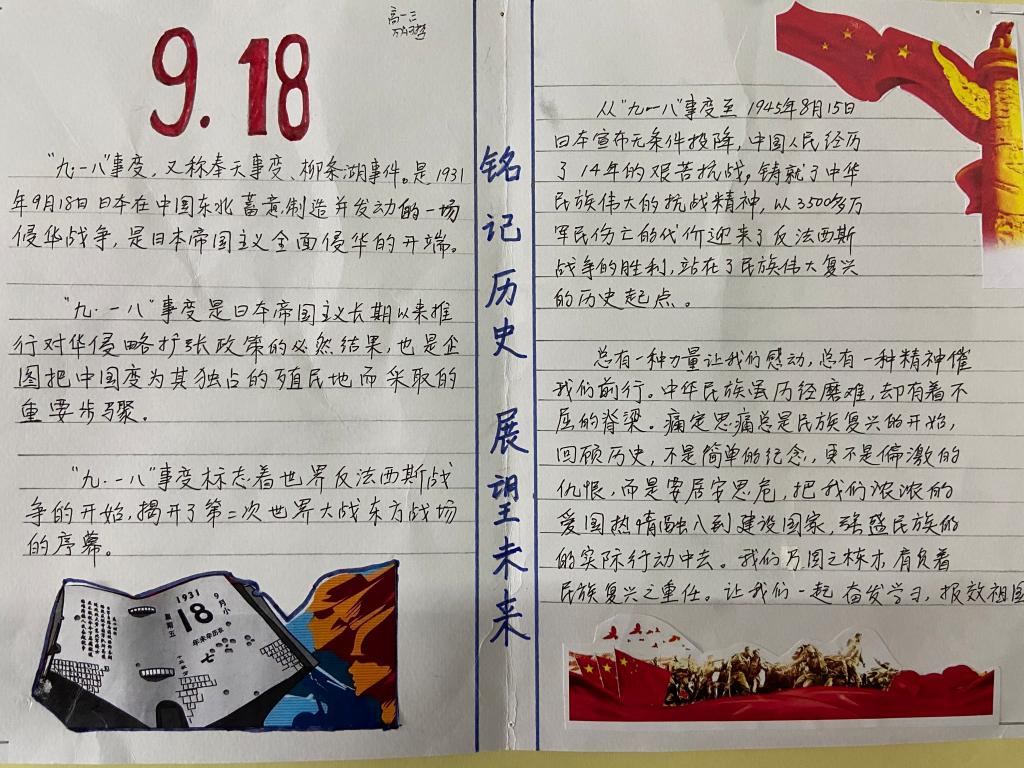 高一三
9.18
"九·一八"事变，又称奉天事变、柳条湖事件。是1931
年9月18日日本在中国东北蓄意制造并发动的一场
侵华战争，是日本帝国主义全面侵华的开端。
"九·一八"事变是日本帝国主义长期以来推
行对华侵略扩张政策的必然结果，也是企
图把中国变为其独占的殖民地而采取的
重要步骤。
"九·一八"事变标志着世界反法西斯战
争的开始，揭开了第二次世界大战东方战场
的序幕。
1931
18
9月小
星期五
年未辛历农
七
铭记历史 展望未来
从"九一八"事变至1945年8月15日
日本宣布无条件投降，中国人民经历
了14年的艰苦抗战，铸就了中华
民族伟大的抗战精神，以3500多万
军民伤亡的代价迎来了反法西斯
战争的胜利，站在了民族伟大复兴
的历史起点。
总有一种力量让我们感动，总有一种精神催
我们前行。中华民族虽历经磨难，却有着不
屈的脊梁。痛定思痛总是民族复兴的开始，
回顾历史，不是简单的纪念，更不是偏激的
仇恨，而是要居安思危，把我们浓浓的
爱国热情融入到建设国家，强盛民族的
的实际行动中去。我们为国之栋木，肩负着
民族复兴之重任。让我们一起奋发学习，报效祖国